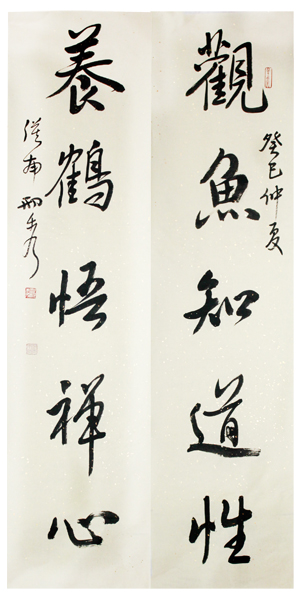 觀魚知道性
癸巳仲夏
養鶴悟禪心